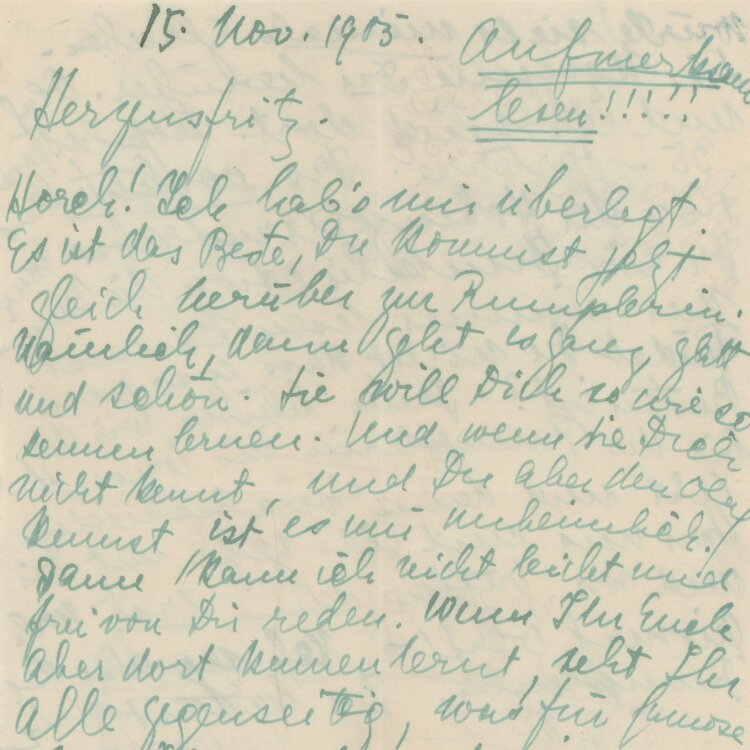 15. Nov. 1905.
Aufmerksam
lesen!!!!!
Herzensfritz.
Horch! Ich hab's mir überlegt.
Es ist das Beste, Du kommst jetzt
gleich herüber zur Rumplerin.
Nämlich, dann geht es ganz glatt
und schön. Sie will Dich so wie so
kennen lernen. Und wenn sie Dich
nicht kennt, und Du aber den
kennst ist es mir unheimlich.
Dann kann ich nicht leicht und
frei von Dir reden. Wenn Ihr Euch
aber dort kennen lernt, seht Ihr
alle gegenseitig, was für famose